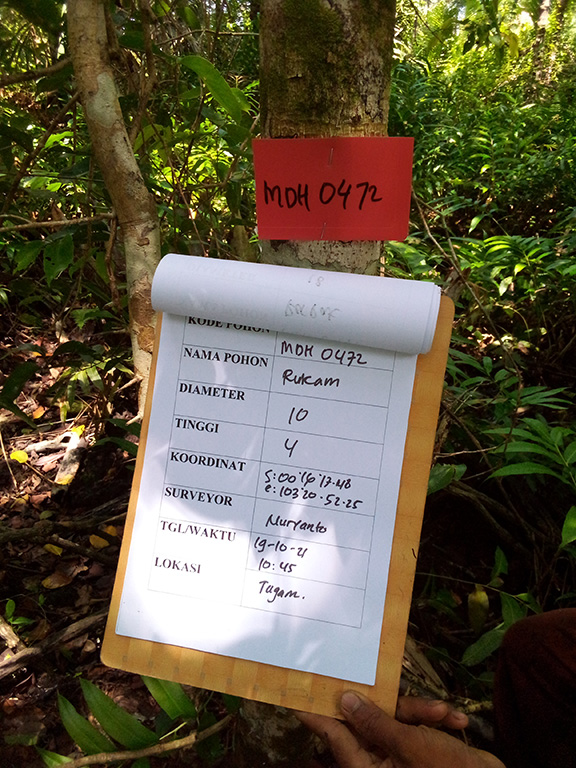 MDH 0472
KODE POHON MDH 0472
NAMA POHON Rukam
DIAMETER 10
TINGGI 4
KOORDINAT S:00°16'17.48
e:103°20.52.25
SURVEYOR Nuryanto
TGL/WAKTU 19-10-21
10:45
LOKASI Tugam.